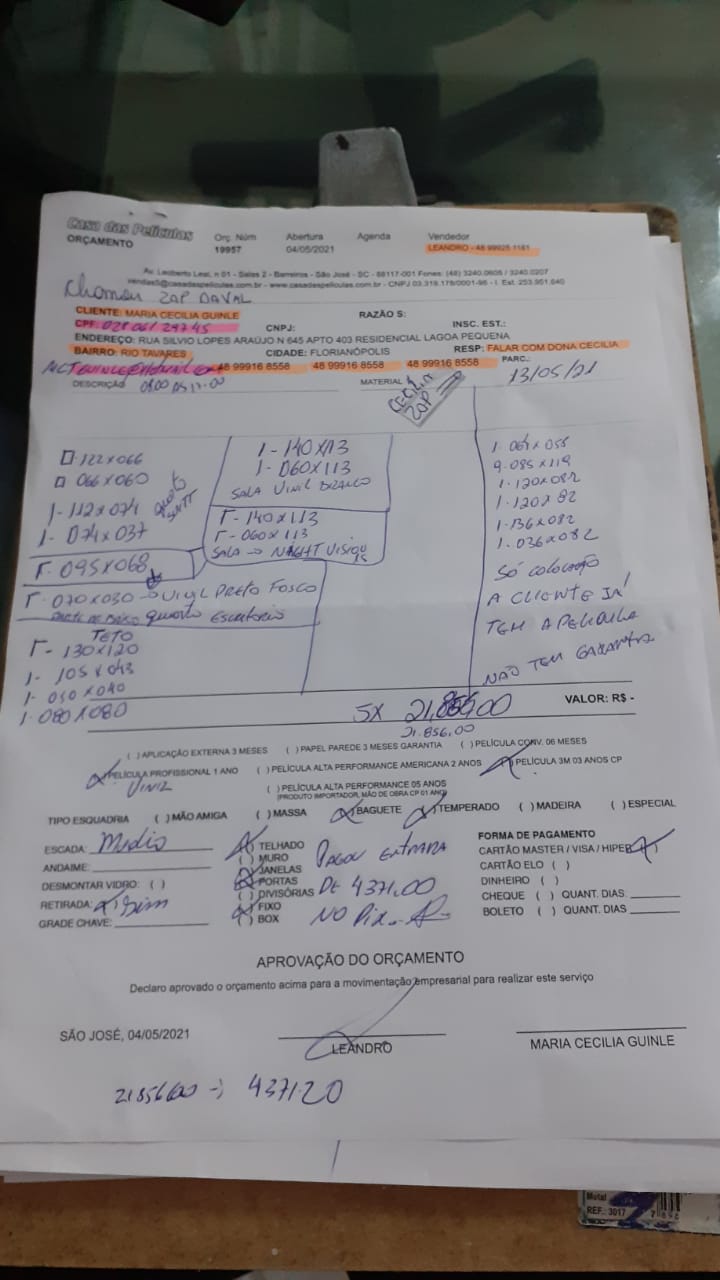 Casa das Películas
ORÇAMENTO
Orç. Núm Abertura Agenda Vendedor
19957 04/05/2021 LEANDRO - 48 99925 1161
Av. Leoberto Leal, n 01 - Salas 2 - Barreiros - São José - SC - 88117-001 Fones: (48) 3240.0605 / 3240.0207
vendas5@casadaspeliculas.com.br - www.casadaspeliculas.com.br - CNPJ 03.319.178/0001-96 - I. Est. 253.901.640
Chamar ZAP DAVAL
CLIENTE: MARIA CECILIA GUINLE RAZÃO S:
CPF: 028 061 297 45 CNPJ: INSC. EST.:
ENDEREÇO: RUA SILVIO LOPES ARAÚJO N 645 APTO 403 RESIDENCIAL LAGOA PEQUENA
BAIRRO: RIO TAVARES CIDADE: FLORIANÓPOLIS RESP: FALAR COM DONA CECILIA
48 99916 8558 48 99916 8558 48 99916 8558 PARC.:
DESCRIÇÃO MATERIAL 13/05/21
CECILIA
ZAP
122x066
066x060
1-112x074
1-074x037
1-095x068
1-070x030 → VINIL PRETO FOSCO
PARTE DE BAIXO Quarto Escritorio
TETO
1-130x120
1-105x043
1-080x080
1-140x113
1-060x113
SALA VINIL BRANCO
1-140x113
1-060x113
SALA → NIGHT VISION
15
9.085x119
1-120x082
1-120x82
1-136x082
1-036x082
SÓ COLOCAÇÃO
A CLIENTE JÁ
TEM A PELICULA
NÃO TEM GARANTIA
5X VALOR: R$ -
21.856.00
( ) APLICAÇÃO EXTERNA 3 MESES ( ) PAPEL PAREDE 3 MESES GARANTIA ( ) PELÍCULA CONV. 06 MESES
(X) PELÍCULA PROFISSIONAL 1 ANO ( ) PELÍCULA ALTA PERFORMANCE AMERICANA 2 ANOS (X) PELÍCULA 3M 03 ANOS CP
VINIL
( ) PELÍCULA ALTA PERFORMANCE 05 ANOS
(PRODUTO IMPORTADOR, MÃO DE OBRA CP 01 ANO)
TIPO ESQUADRIA ( ) MÃO AMIGA ( ) MASSA (X) BAGUETE (X) TEMPERADO ( ) MADEIRA ( ) ESPECIAL
ESCADA: Medio
ANDAIME:
DESMONTAR VIDRO: ( )
RETIRADA: (X) Sim
GRADE CHAVE:
(X) TELHADO
( ) MURO
(X) JANELAS
(X) PORTAS
( ) DIVISÓRIAS
(X) FIXO
( ) BOX
Pagou ENTRADA
DE 4371.00
NO Pix
FORMA DE PAGAMENTO
CARTÃO MASTER / VISA / HIPER (X)
CARTÃO ELO ( )
DINHEIRO ( )
CHEQUE ( ) QUANT. DIAS
BOLETO ( ) QUANT. DIAS
APROVAÇÃO DO ORÇAMENTO
Declaro aprovado o orçamento acima para a movimentação empresarial para realizar este serviço
SÃO JOSÉ, 04/05/2021
LEANDRO
MARIA CECILIA GUINLE
21.856,00 → 4371.20
Metal
REF.: 3017